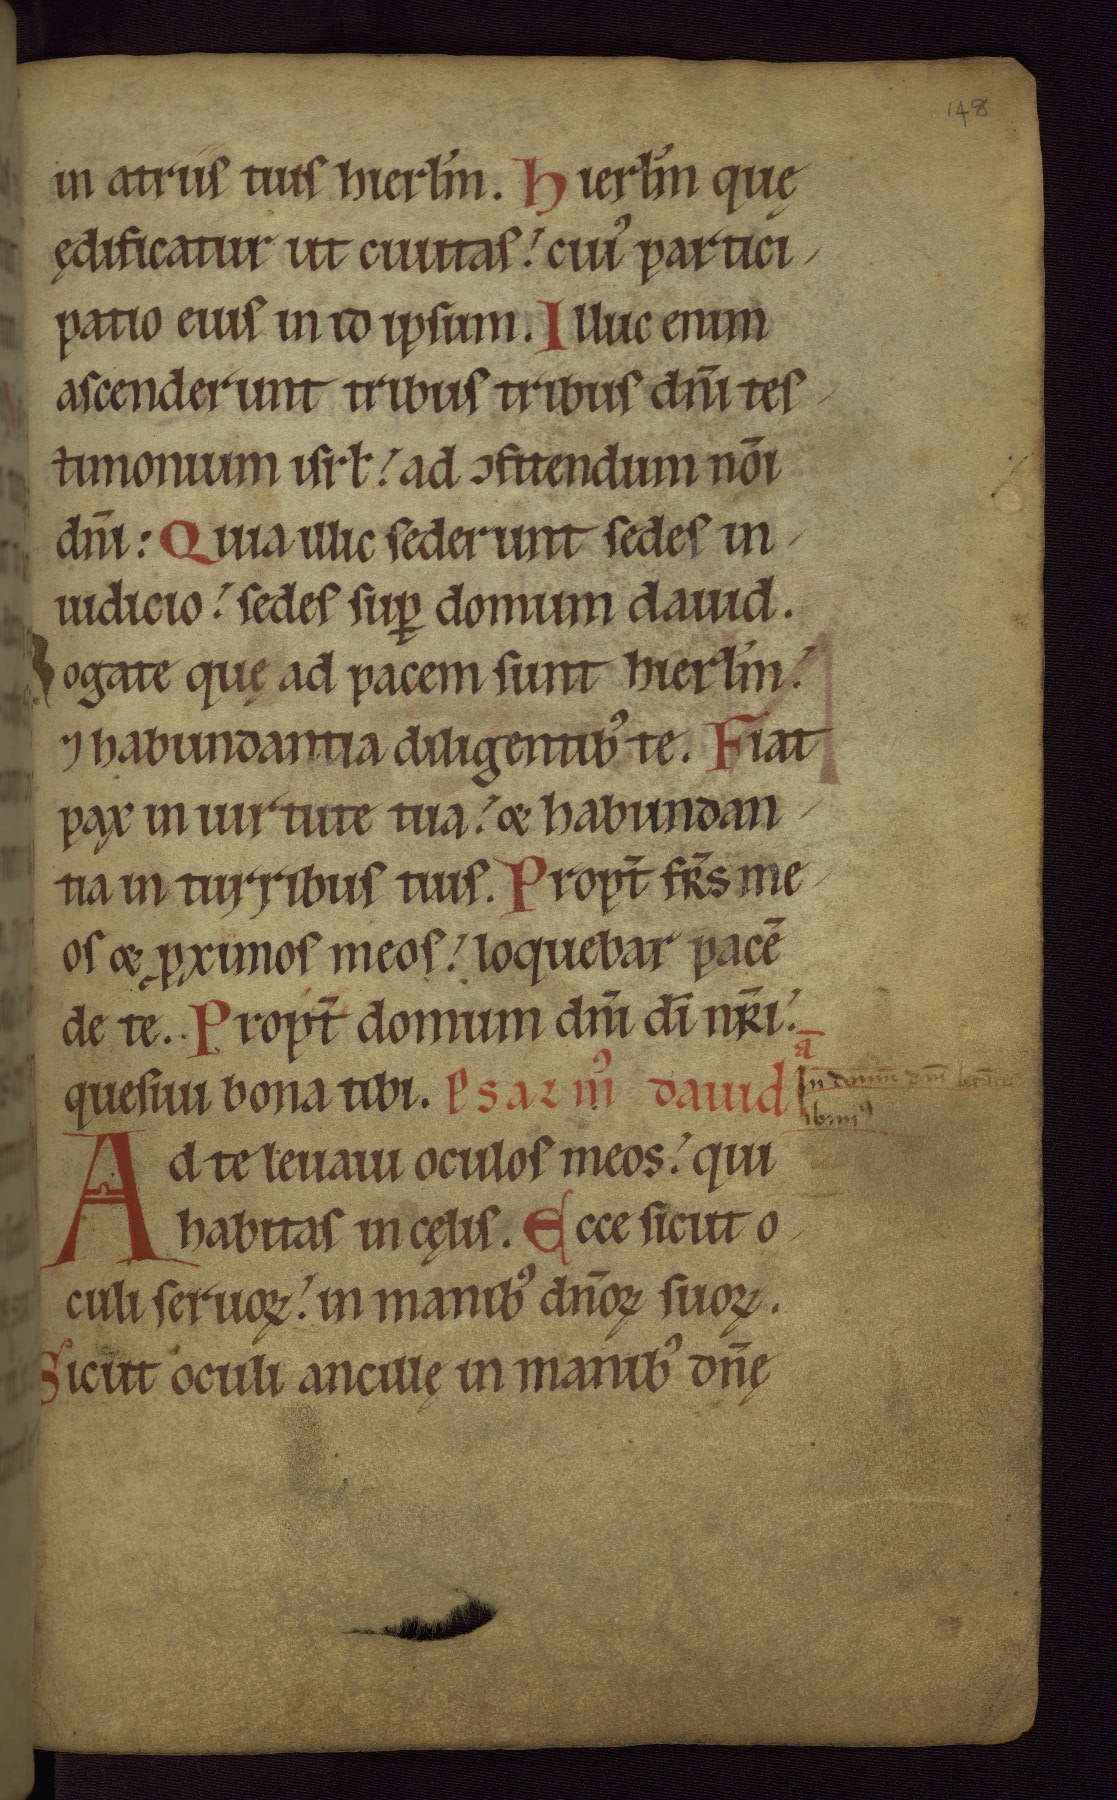 148
in atriis tuis hierl̄m. Hierl̄m quę
ędificatur ut ciuitas! cuiꝰ partici
patio eius in id ipsum. Illuc enim
ascenderunt tribus tribus dn̄i tes
timonium isrł! ad ↄfitendum nōi
dn̄i: Quia illic sederunt sedes in
iudicio! sedes suꝑ domum dauid.
Rogate quę ad pacem sunt hierl̄m!
⁊ habundantia diligentibꝰ te. Fiat
pax in uirtute tua! & habundan
tia in turribus tuis. Propt̄ fr̄s me
os & ꝓximos meos! loquebar pacē
de te. Propt̄ domum dn̄i dī nr̄i!
quesiui bona tibi. Psalmꝰ dauid
a
In domū dn̄i letātes
ibimꝰ
Ad te leuaui oculos meos! qui
habitas in cęlis. Ecce sicut o
culi seruoꝝ! in manibꝰ dn̄oꝝ suoꝝ.
Sicut oculi ancillę in manibꝰ dn̄ę